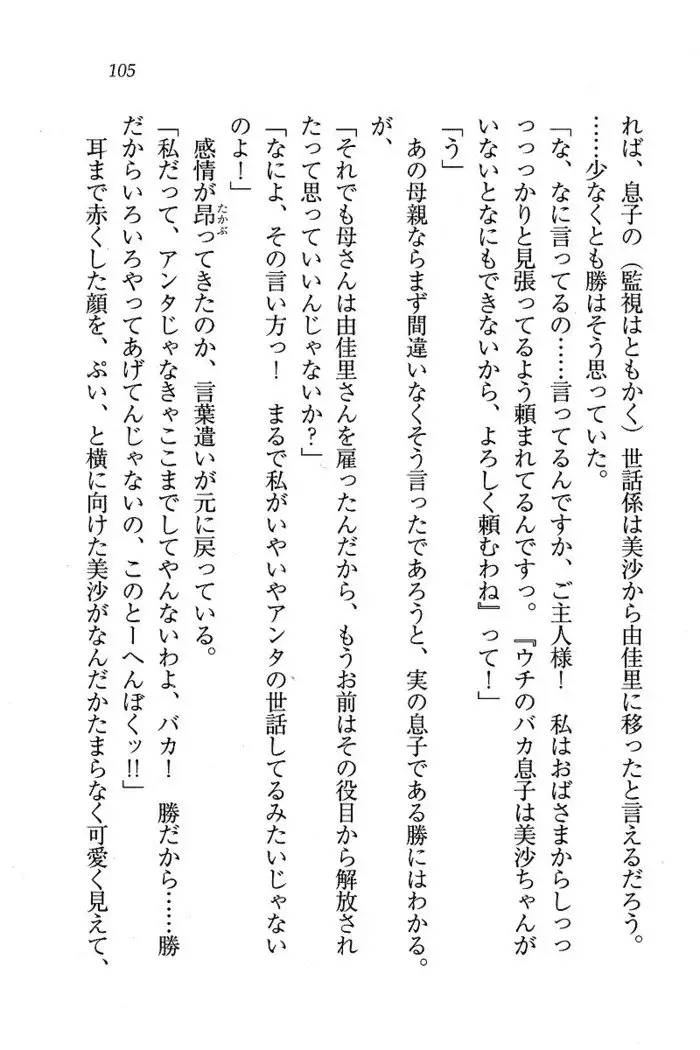 105
れば、息子の（監視はともかく）世話係は美沙から由佳里に移ったと言えるだろう。
……少なくとも勝はそう思っていた。
「な、なに言ってるの……言ってるんですか、ご主人様！　私はおばさまからしっっ
っっっかりと見張ってるよう頼まれてるんですっ。『ウチのバカ息子は美沙ちゃんが
いないとなにもできないから、よろしく頼むわね』って！」
「う」
あの母親ならまず間違いなくそう言ったであろうと、実の息子である勝にはわかる。
が、
「それでも母さんは由佳里さんを雇ったんだから、もうお前はその役目から解放され
たって思っていいんじゃないか？」
「なによ、その言い方っ！　まるで私がいやいやアンタの世話してるみたいじゃない
のよ！」
感情が昂ってきたのか、言葉遣いが元に戻っている。
たかぶ
「私だって、アンタじゃなきゃここまでしてやんないわよ、バカ！　勝だから……勝
だからいろいろやってあげてんじゃないの、このとーへんぼくッ!!」
耳まで赤くした顔を、ぷい、と横に向けた美沙がなんだかたまらなく可愛く見えて、